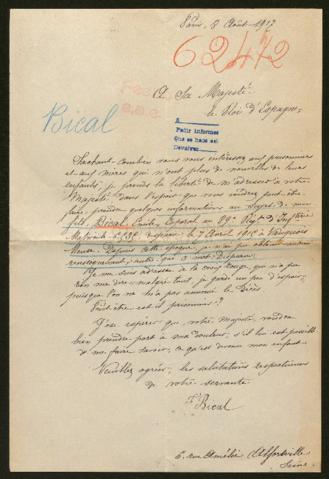 Paris, 8 Août 1917
62472
A Sa Majesté
le Roi d'Espagne,
Bical
Pedir informes
Que se hace así
Devolver
Sachant combien vous vous intéressez aux personnes
et aux mères qui n'ont plus de nouvelles de leurs
enfants, je prends la liberté de m'adresser à votre
Majesté dans l'espoir que vous voudrez peut-être
faire prendre quelques informations au sujet de mon
fils, Bical, Emile, Caporal au 89e Régt d'Infterie
Mle disparu le 7 Avril 1915 à Vauquois
Meuse. Depuis cette époque, je n'ai pu obtenir aucun
renseignement, autre que ce mot: Disparu.
Je me suis adressée à la Croix Rouge, qui n'a pu
rien me dire. malgré tout, je garde un peu d'espoir,
puisque l'on ne m'a pas annoncé le décès
Peut-être est-il prisonnier?
J'ose espérer que votre majesté, voudra
bien prendre part à ma douleur, s'il lui est possible
de me faire savoir, ce qu'est devenu mon enfant
Veuillez agréer, les salutations respectueuses
de votre servante
Bical
6, rue Amélie, Alfortville
Seine.